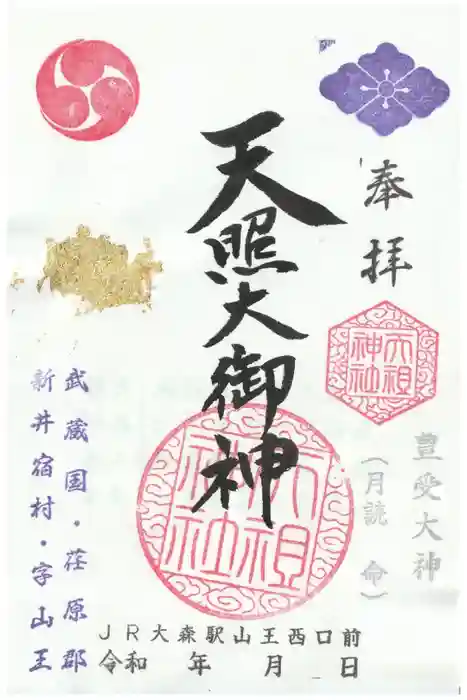 奉拝
天祖神社
豊受大神
（月読 命）
天照大御神
天祖神社
武蔵国・荏原郡
新井宿村・字山王
ＪＲ大森駅山王西口前
令和 年 月 日